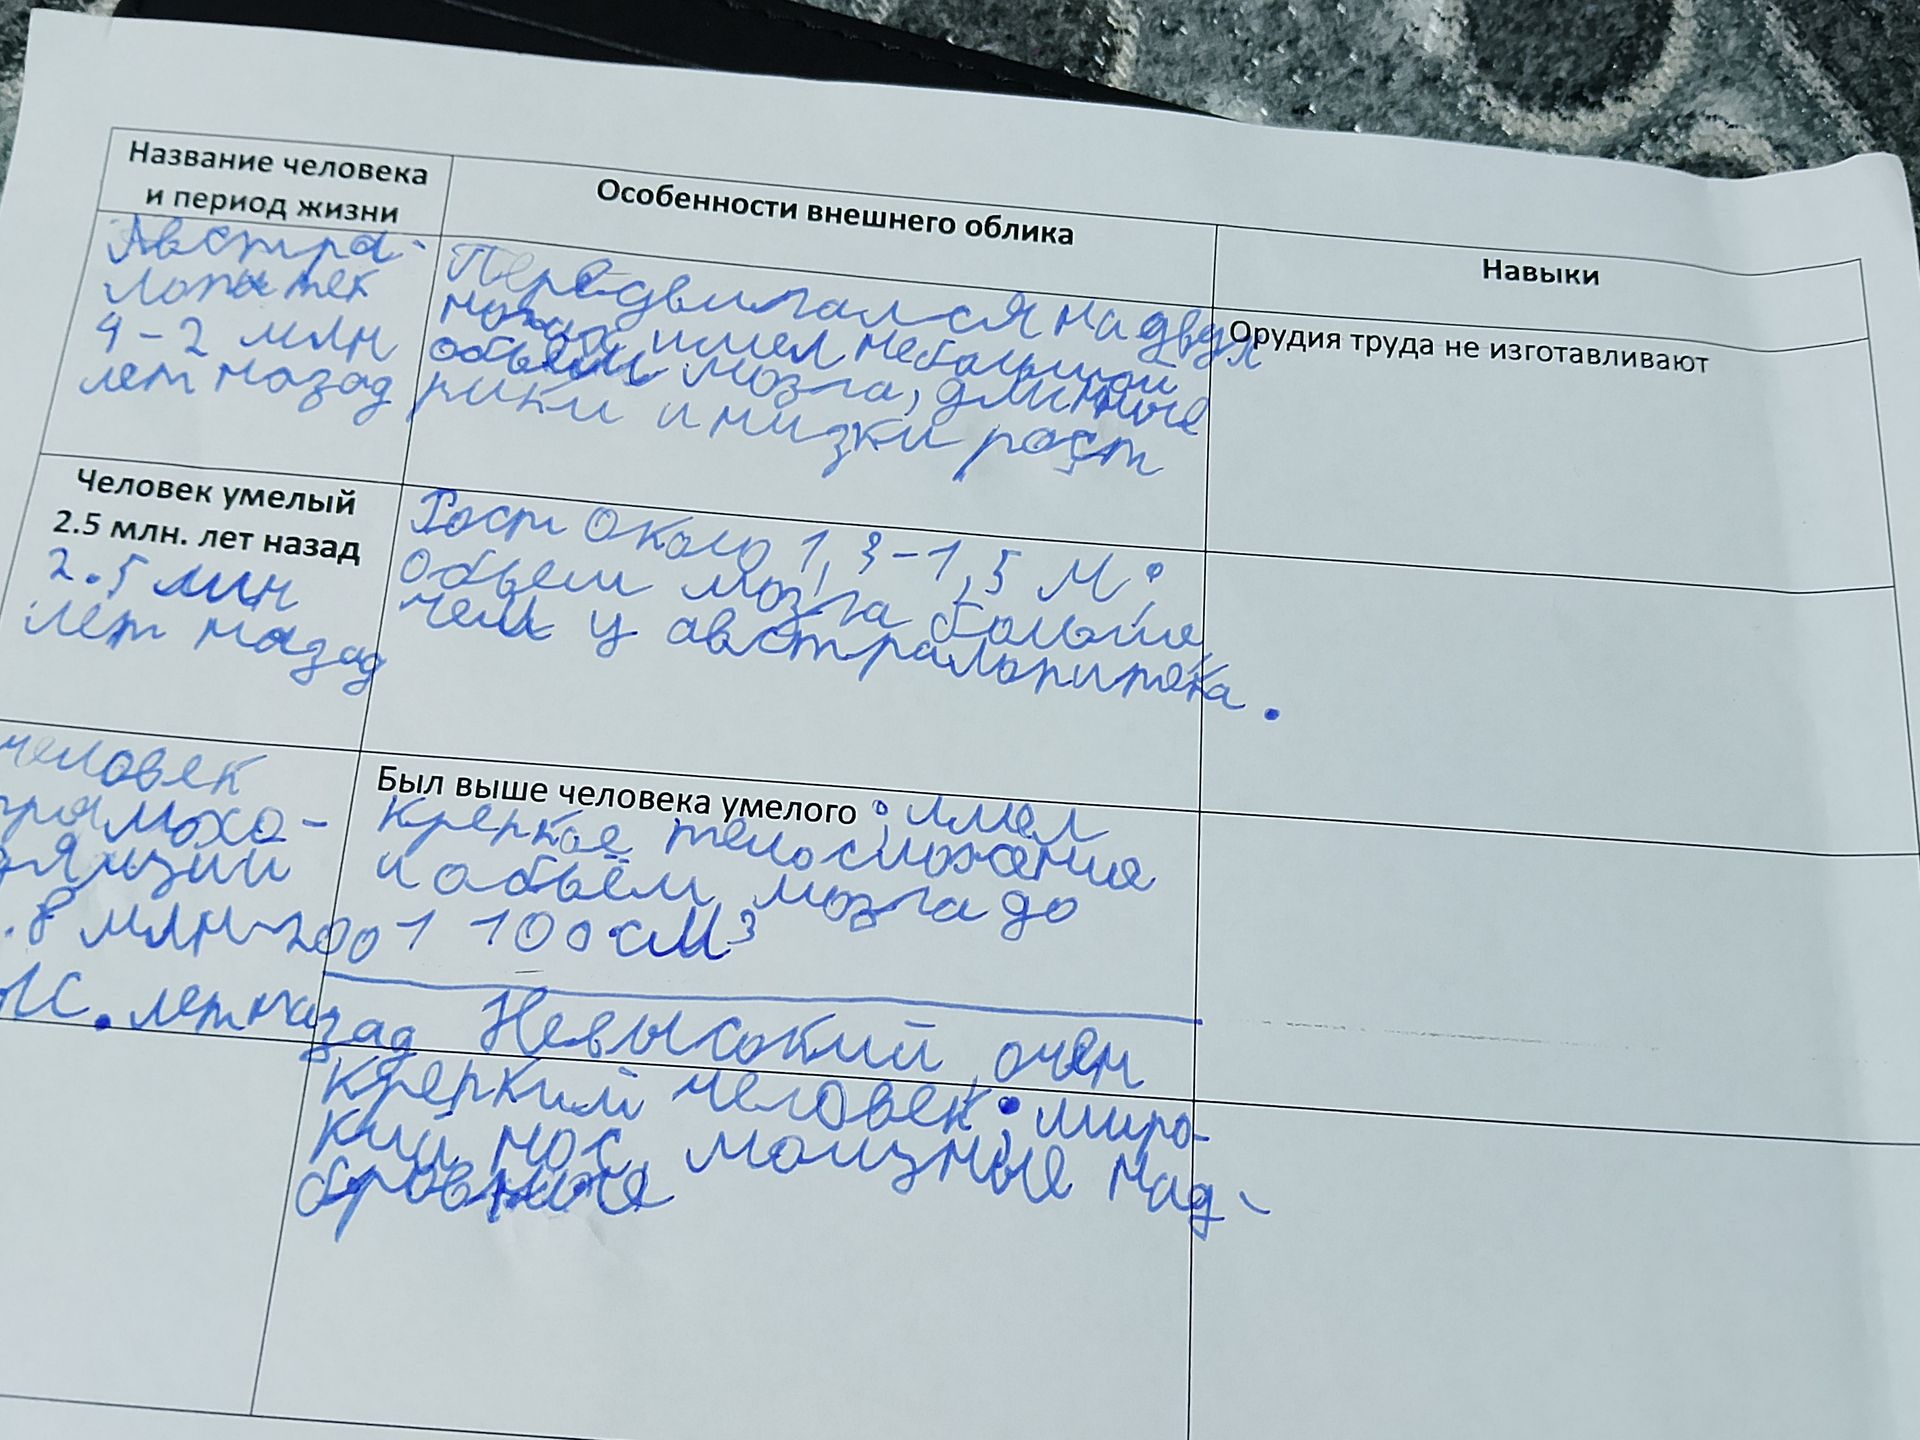 Название человека
и период жизни
Особенности внешнего облика
Навыки
Австра-
лопитек
4-2 млн
лет назад
Передвигался на двух
ногах имел небольшой
объем мозга, длинные
рики и низки рост
Орудия труда не изготавливают
Человек умелый
2.5 млн. лет назад
2.5 млн
лет назад
Рост около 1,3-1,5 м;
объем мозга больше
чем у австралопитека.
человек
прямохо-
дящий
.8 млн-200
лет назад
Был выше человека умелого; имел
крепкое телосложение
и объём мозга до
1 100 см³
Невысокий очен
крепкий человек; широ-
кий нос мощные над-
бровные